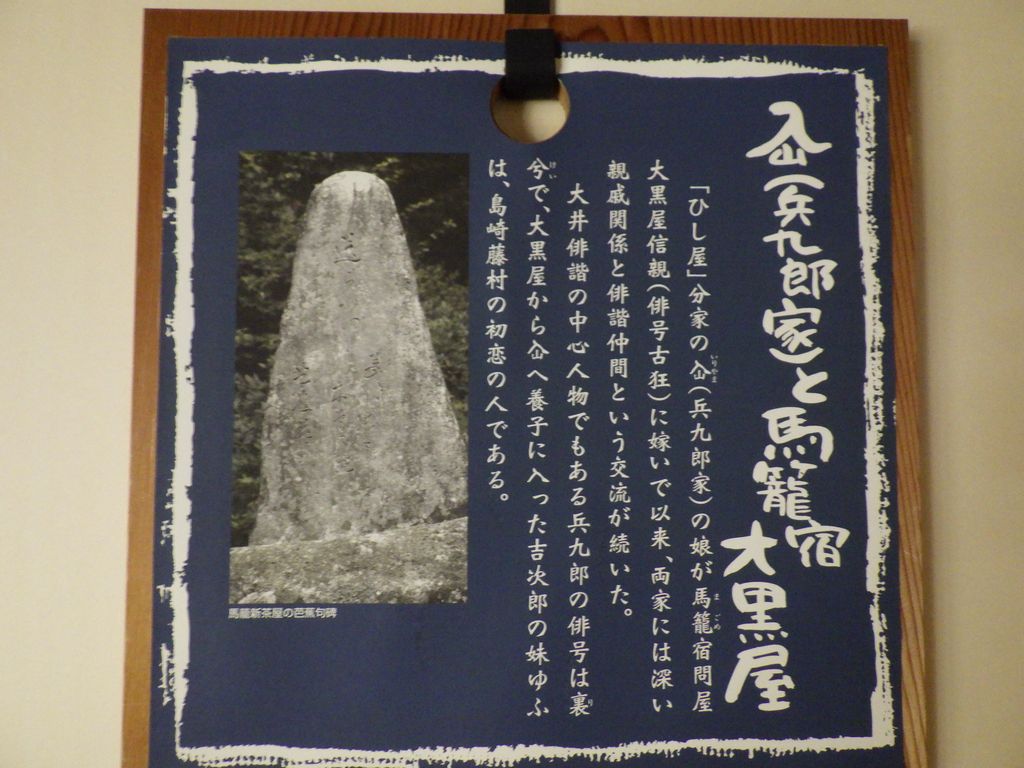 仚(兵九郎家)と馬籠宿大黒屋
「ひし屋」分家の仚(兵九郎家)の娘が馬籠宿問屋
大黒屋信親(俳号古狂)に嫁いで以来、両家には深い
親戚関係と俳諧仲間という交流が続いた。
大井俳諧の中心人物でもある兵九郎の俳号は裏
兮で、大黒屋から仚へ養子に入った吉次郎の妹ゆふ
は、島崎藤村の初恋の人である。
馬籠新茶屋の芭蕉句碑